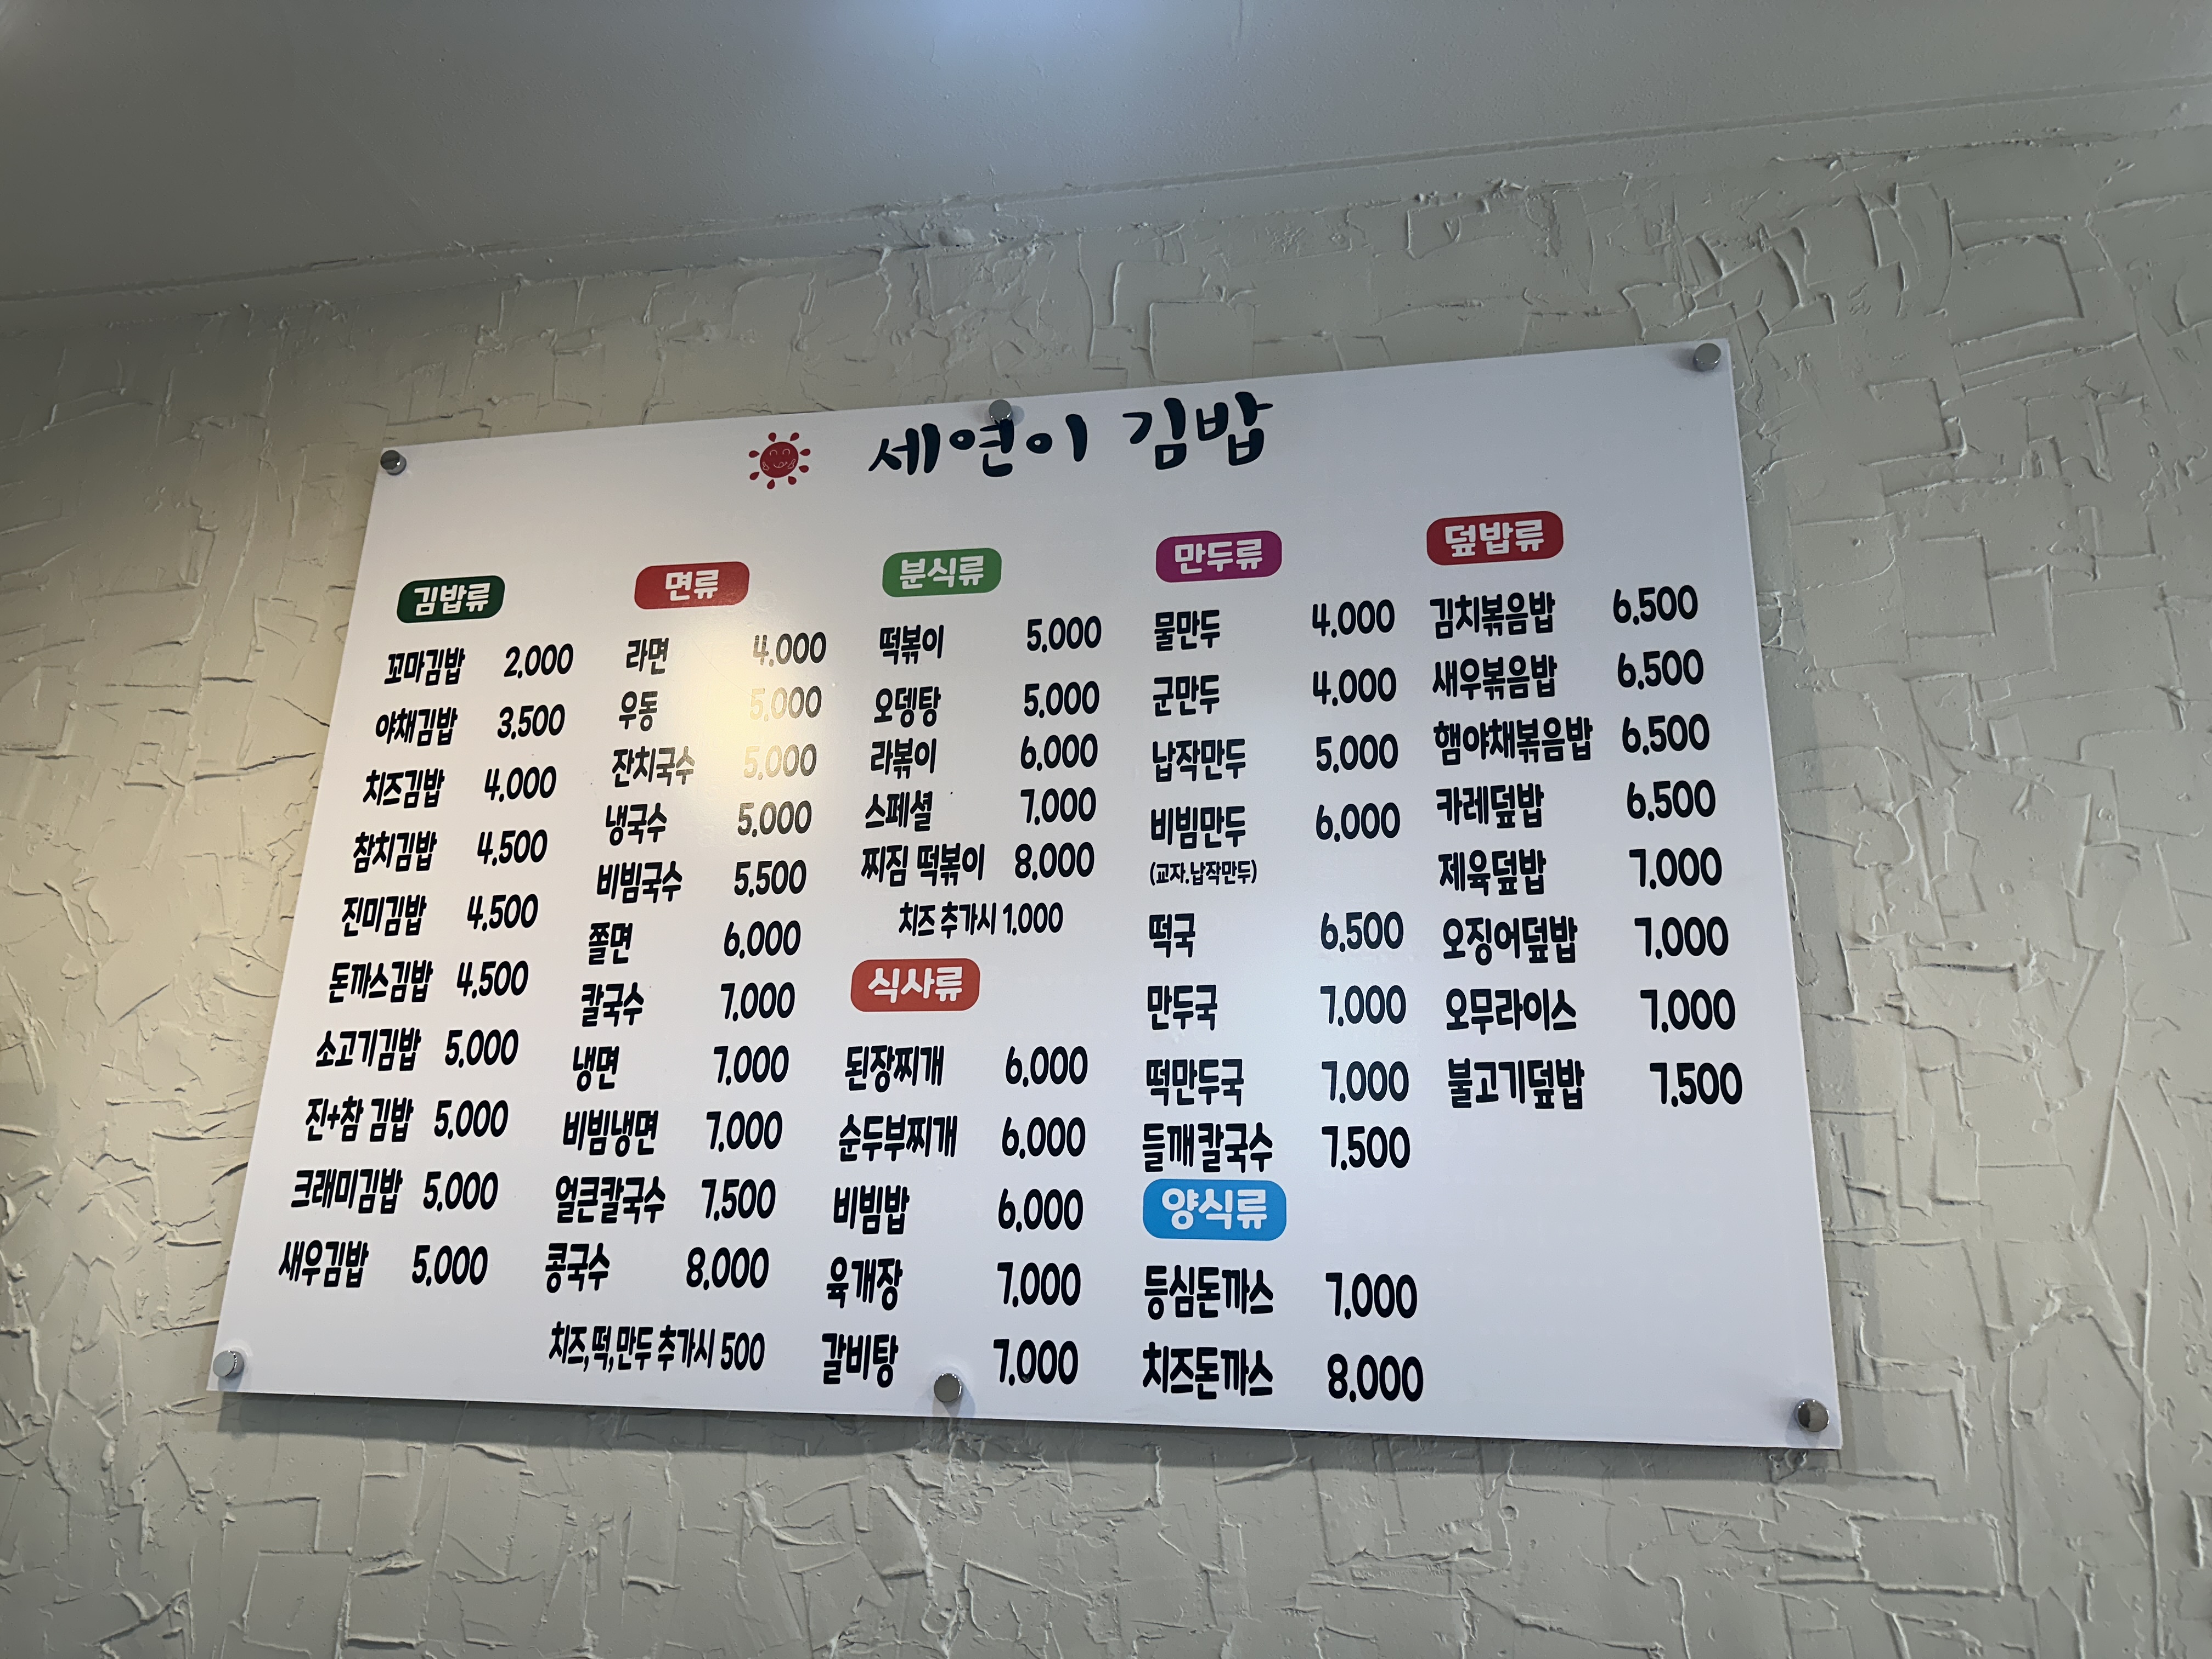 세연이 김밥
김밥류
꼬마김밥 2,000
야채김밥 3,500
치즈김밥 4,000
참치김밥 4,500
진미김밥 4,500
돈까스김밥 4,500
소고기김밥 5,000
진+참 김밥 5,000
크래미김밥 5,000
새우김밥 5,000
면류
라면 4,000
우동 5,000
잔치국수 5,000
냉국수 5,000
비빔국수 5,500
쫄면 6,000
칼국수 7,000
냉면 7,000
비빔냉면 7,000
얼큰칼국수 7,500
콩국수 8,000
치즈,떡,만두 추가시 500
분식류
떡볶이 5,000
오뎅탕 5,000
라볶이 6,000
스페셜 7,000
찌짐 떡볶이 8,000
치즈 추가시 1,000
식사류
된장찌개 6,000
순두부찌개 6,000
비빔밥 6,000
육개장 7,000
갈비탕 7,000
만두류
물만두 4,000
군만두 4,000
납작만두 5,000
비빔만두 6,000
(교자.납작만두)
떡국 6,500
만두국 7,000
떡만두국 7,000
들깨칼국수 7,500
양식류
등심돈까스 7,000
치즈돈까스 8,000
덮밥류
김치볶음밥 6,500
새우볶음밥 6,500
햄야채볶음밥 6,500
카레덮밥 6,500
제육덮밥 7,000
오징어덮밥 7,000
오무라이스 7,000
불고기덮밥 7,500